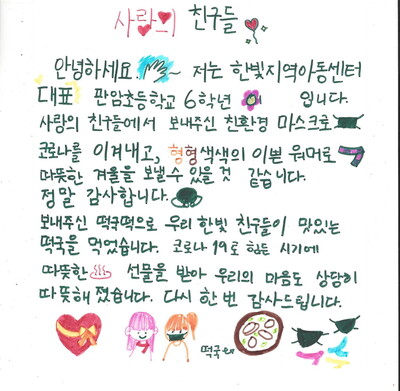 사랑의 친구들
안녕하세요. 저는 한빛지역아동센터
대표 판암초등학교 6학년 입니다.
사랑의 친구들에서 보내주신 친환경 마스크로
코로나를 이겨내고, 형형색색의 이쁜 워머로
따뜻한 겨울을 보낼수 있을 것 같습니다.
정말 감사합니다.
보내주신 떡국떡으로 우리 한빛 친구들이 맛있는
떡국을 먹었습니다. 코로나 19로 힘든 시기에
따뜻한 선물을 받아 우리의 마음도 상당히
따뜻해졌습니다. 다시 한번 감사드립니다.
떡국